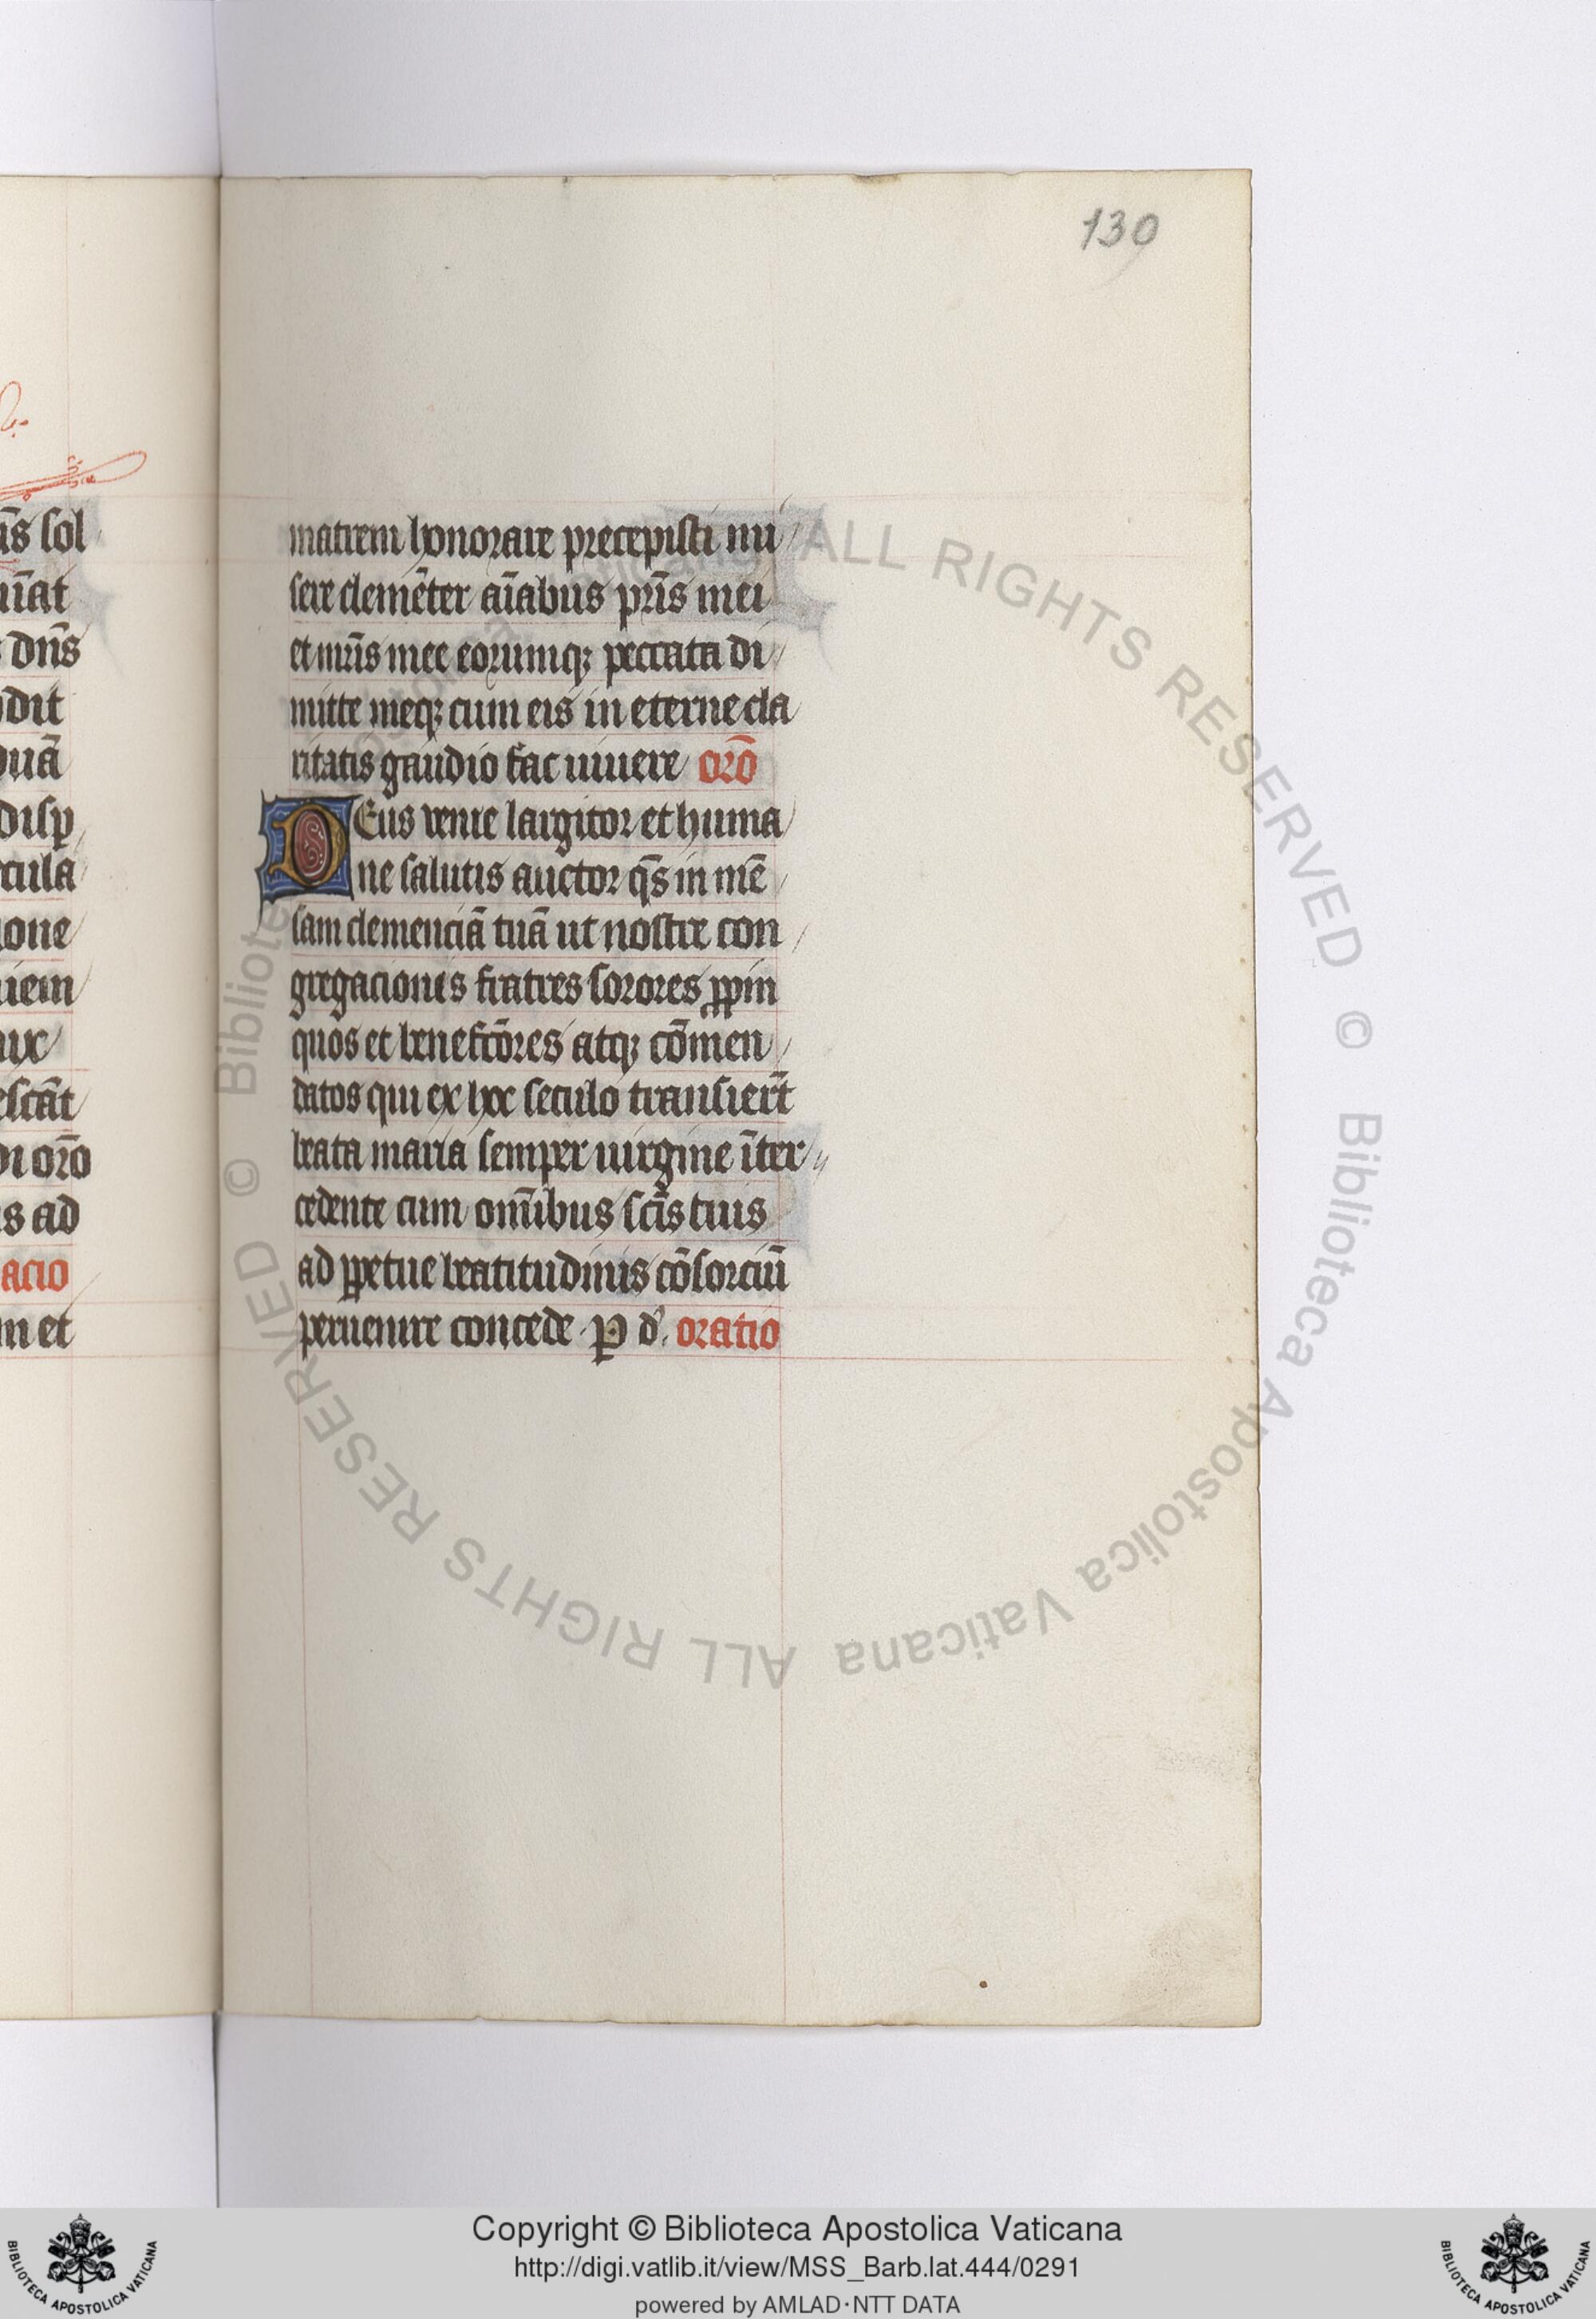 130
ıs sol
uīat
dn̄s
dit
uā
disp
cula
ione
iem
ux
escāt
di oro᷒
s ad
acio
m et
matrem honorare precepisti mi
sere clemēter aīabus pr̄is mei
et mr̄is mee eorumqꝫ peccata di
mitte meqꝫ cum eis in eterne cla
ritatis gaudio fac uiuere orō
Deus uenie largitor et huma
ne salutis auctor qs̄ in mē
sam clemenciā tuā ut nostre con
gregacionis fratres sorores ꝓpin
quos et benefcōres atqꝫ cōmen
datos qui ex hoc seculo transier̄t
beata maria semper uirgine īter
cedente cum om̄ibus sc̄is tuis
ad ꝑpetue beatitudinis cōsorciū
peruenire concede P d. oratio
ALL RIGHTS RESERVED © Biblioteca Apostolica Vaticana
Copyright © Biblioteca Apostolica Vaticana
http://digi.vatlib.it/view/MSS_Barb.lat.444/0291
powered by AMLAD·NTT DATA
BIBLIOTECA APOSTOLICA VATICANA
BIBLIOTECA APOSTOLICA VATICANA